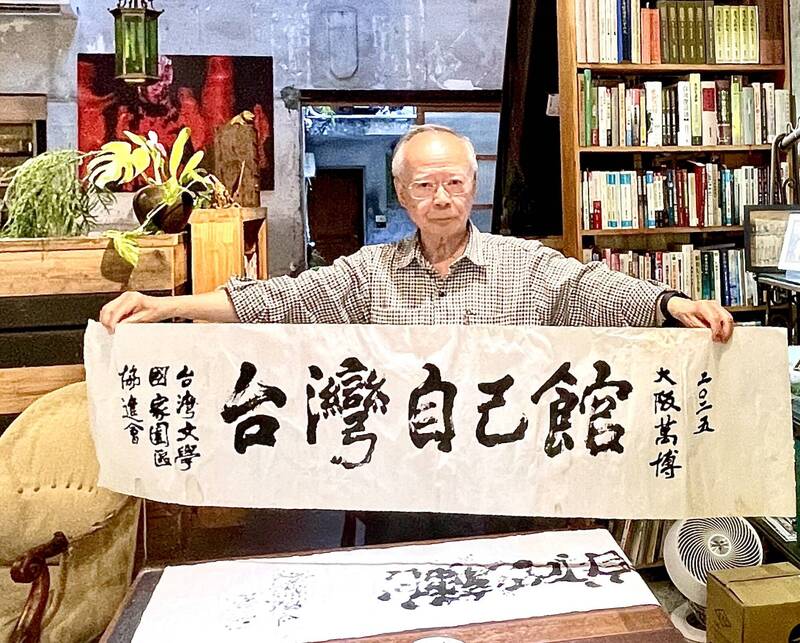 二〇二五
大阪萬博
台灣自己館
台灣文學
國家園區
協進會